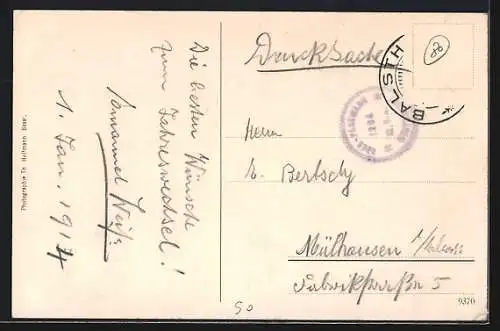 Die besten Wünsche
zum Jahreswechsel!
Emanuel Weiss
1. Jan. 1914
Photographie Th. Hoffmann Basel.
Drucksache
BALSTH
Herrn
E. Bertschy
Mülhausen i/Elsass
Fabrikstraße 5
9370
50